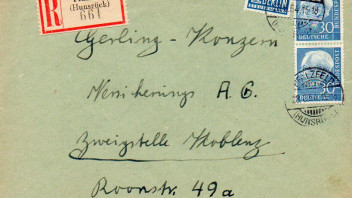 R
(Hunsrück)
661
BERLIN
30
DEUTSCHE
BUNDESPOST
(HUNSRÜCK)
Gerling-Konzern
Versicherungs A.G.
Zweigstelle Koblenz
Roonstr. 49a